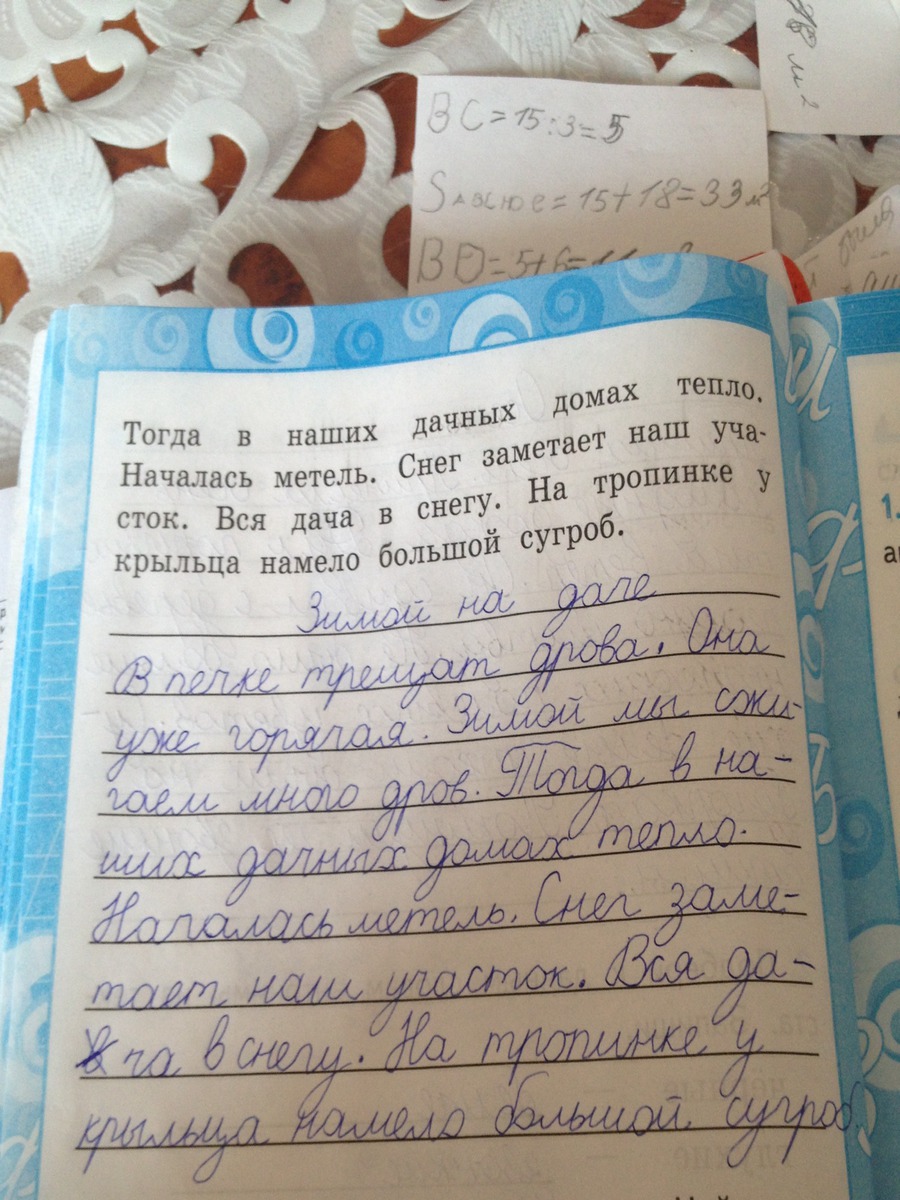 м²
BC = 15 : 3 = 5
S = 15 + 18 = 33 м²
BD = 5 + 6 = 11
Тогда в наших дачных домах тепло.
Началась метель. Снег заметает наш уча-
сток. Вся дача в снегу. На тропинке у
крыльца намело большой сугроб.
Зимой на даче
В печке трещат дрова. Она
уже горячая. Зимой мы сжи-
гаем много дров. Тогда в на-
ших дачных домах тепло.
Началась метель. Снег заме-
тает наш участок. Вся да-
ча в снегу. На тропинке у
крыльца намело большой сугроб.
1.